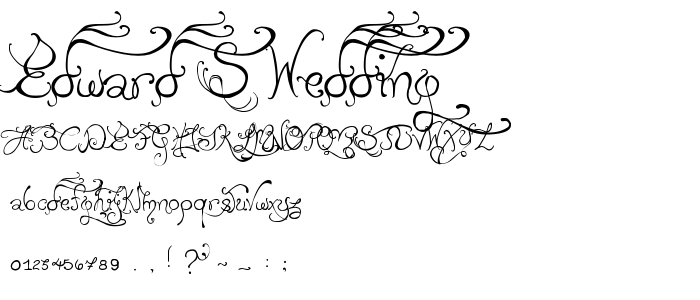 Edward S Wedding
ABCDEFGHIJKLMNOPQRSTUVWXYZ
abcdefghijklmnopqrstuvwxyz
0123456789 . , ! ? ~ - : ;